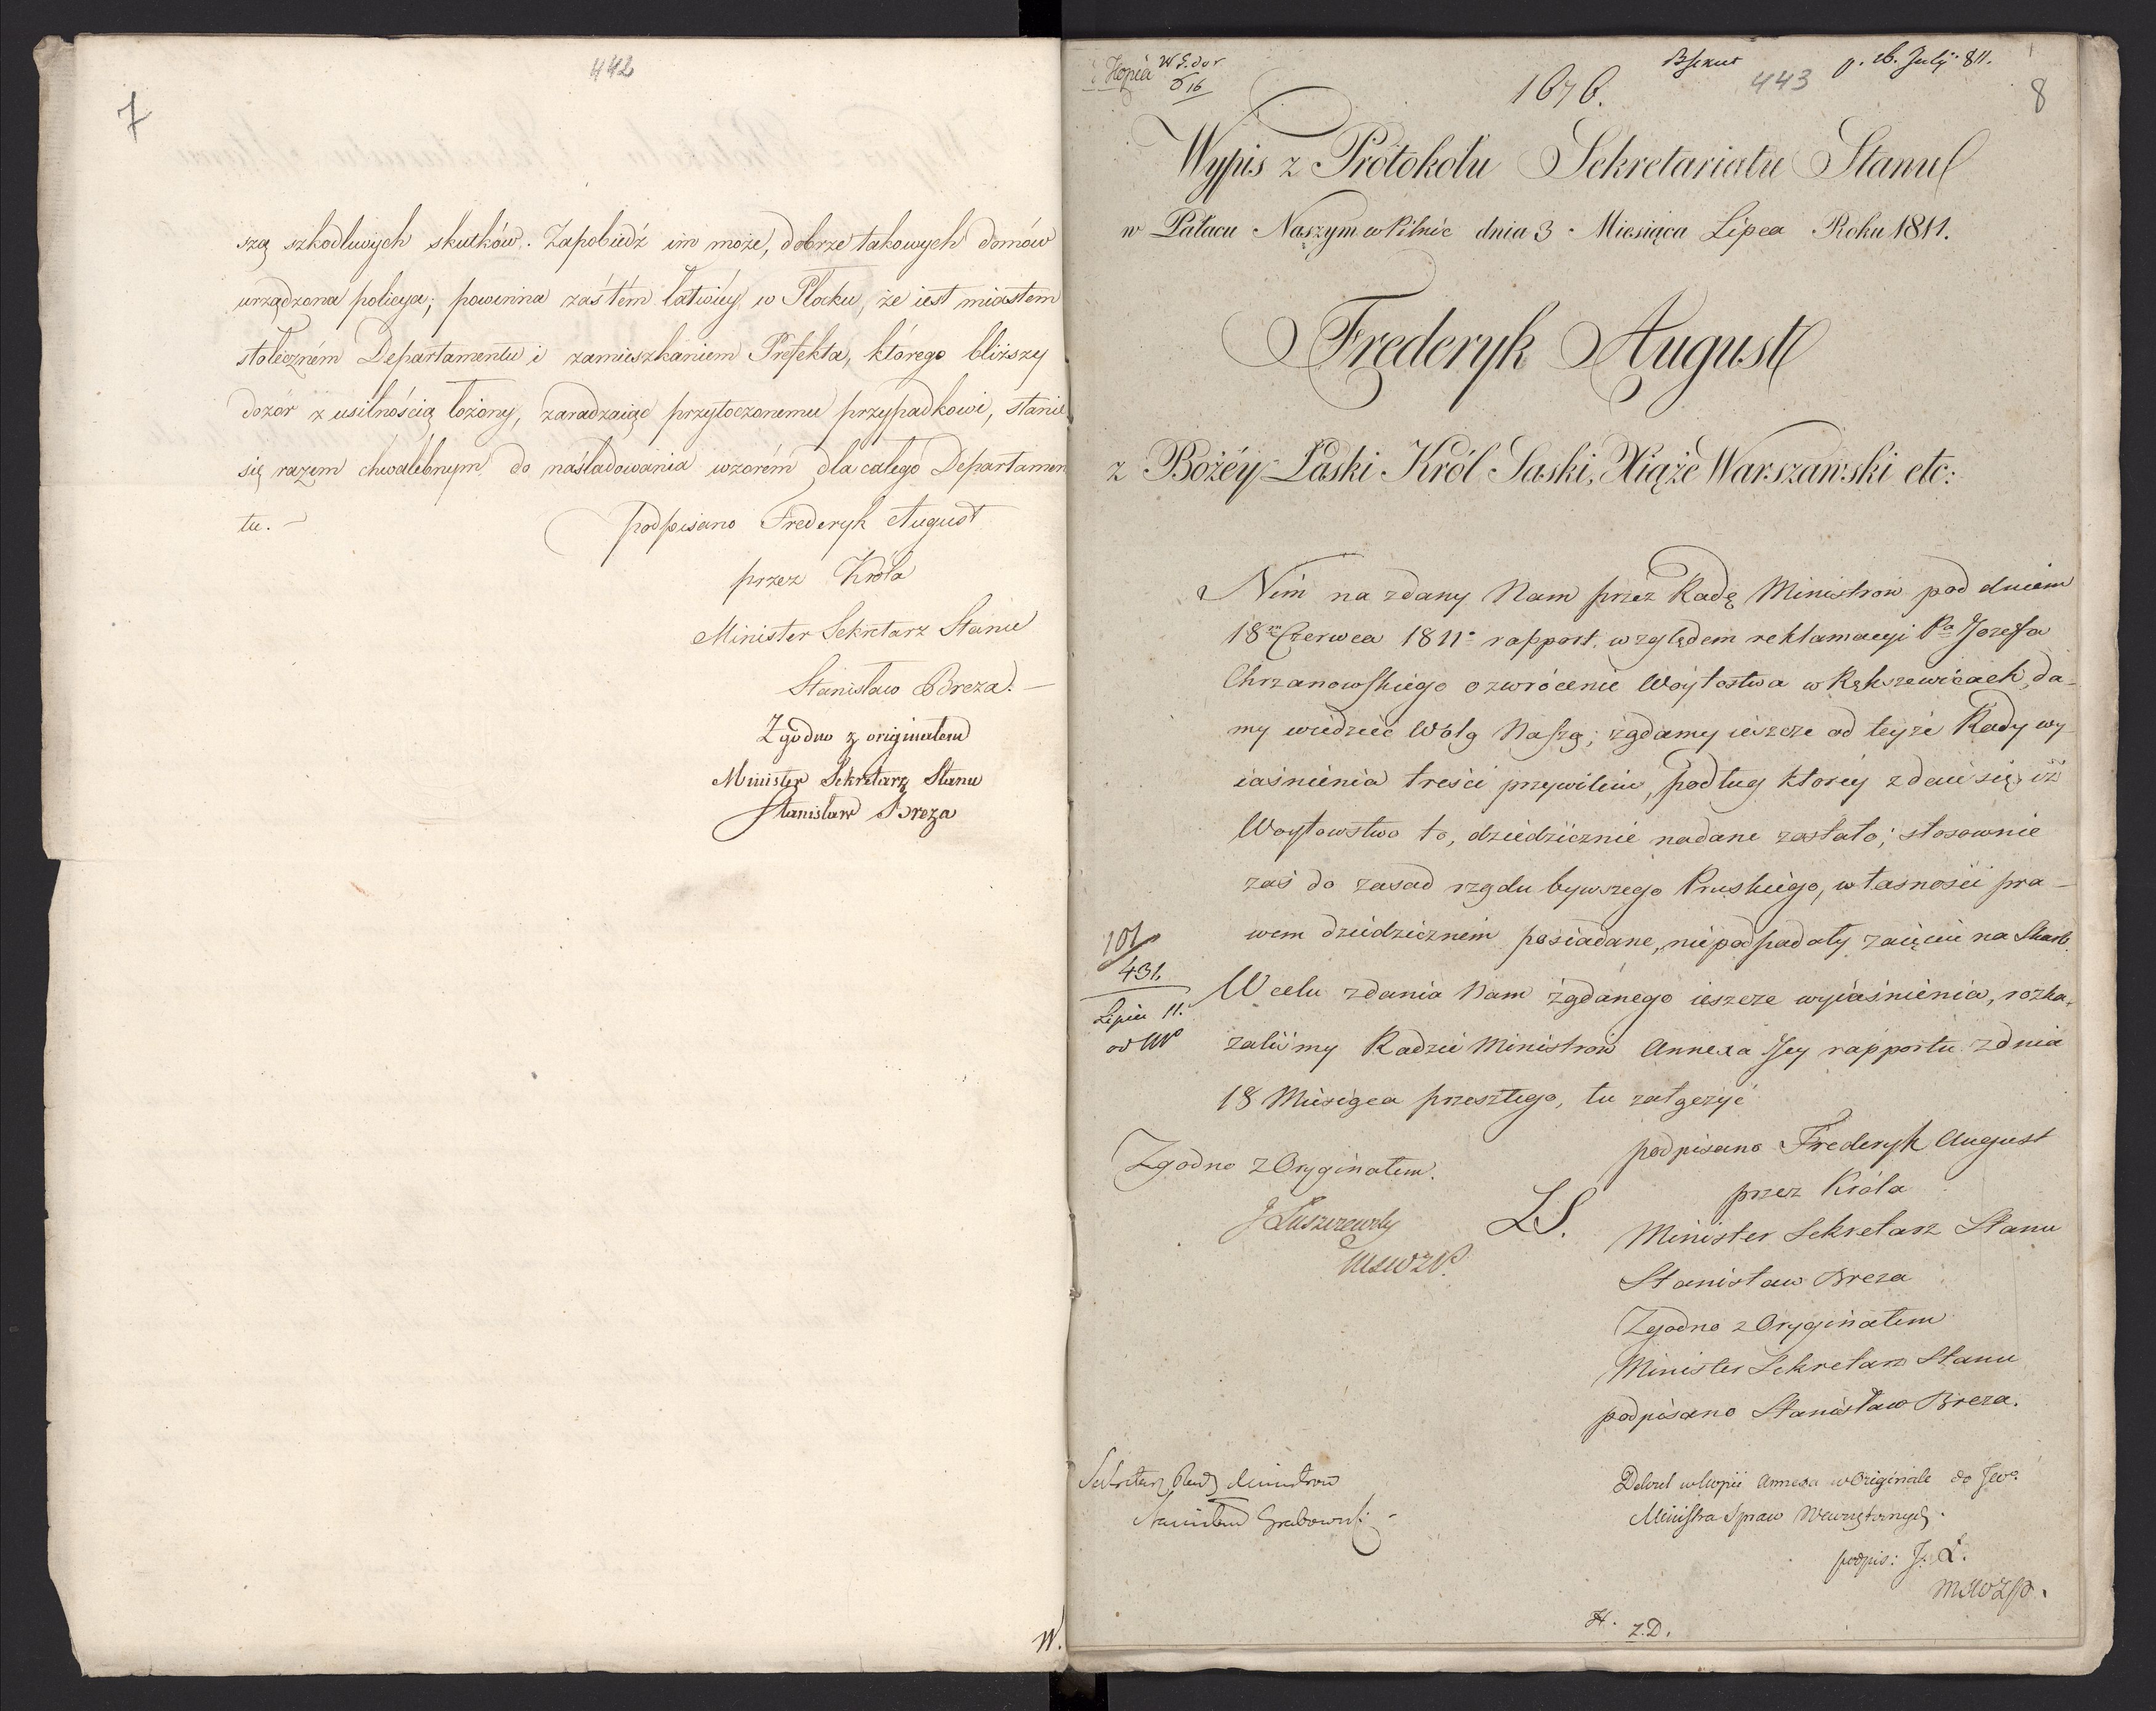 442
7
szą szkodliwych skutków. Zapobiedź im może, dobrze takowych domów
urządzona policya; powinna zaś tém łatwiéy w Płocku, że iest miastem
stołeczném Departamentu i zamieszkaniem Prefekta, którego bliższy
dozór z usilnością łożony, zaradzaiąc przytoczonemu przypadkowi, stanie
się razem chwalebnym do naśladowania wzorém dla całego Departamen
tu. —
podpisano Frederyk August
przez Króla
Minister Sekretarz Stanu
Stanisław Breza. —
Zgodno z originałem
Minister Sekretarz Stanu
Stanisław Breza
W.
Kopia
16
1676.
443
p. 16. July 811.
8
Wypis z Protokołu Sekretariatu Stanu
w Pałacu Naszym w Pilnic dnia 3 Miesiąca Lipca Roku 1811.
Frederyk August
z Bożéy Łaski Król Saski, Xiąże Warszawski etc:
Nim na zdany Nam przez Radę Ministrow pod dniem
18 Czerwca 1811 rapport, względem reklamacyi Pa Jozefa
Chrzanowskiego o zwrócenie Woytostwa w Rększewicach, da-
my wiedzieć Wolą Naszą; żądamy ieszcze od teyże Rady wy
iaśnienia treści przywileiu, podług ktorey zdaie się, iż
Woytowstwo to, dziedzicznie nadane zostało; stosownie
zaś do zasad rządu bywszego Pruskiego, własności pra-
wem dziedzicznem posiadane, niepodpadały zaięciu na Skarb.
101
431.
Lipca 11.
W celu zdania Nam żądanego ieszcze wyiaśnienia, rozka-
zaliśmy Radzie Ministrow Annexa Jey rapportu z dnia
18 Miesiąca przeszłego, tu załączyć
podpisano Frederyk August
Zgodno z Oryginałem.
przez Króla
J Łuszczewski
LS.
Minister Sekretarz Stanu
MSWZP.
Stanisław Breza
Zgodno z Oryginałem
Minister Sekretarz Stanu
podpisano Stanisław Breza.
Sekretarz Rady Ministrow
Stanisław Grabowski
Dekret w kopii annexa w Originale do JWo
Ministra Spraw Wewnętrznych.
podpis: J. Ł.
MSWZP.
Z.D.